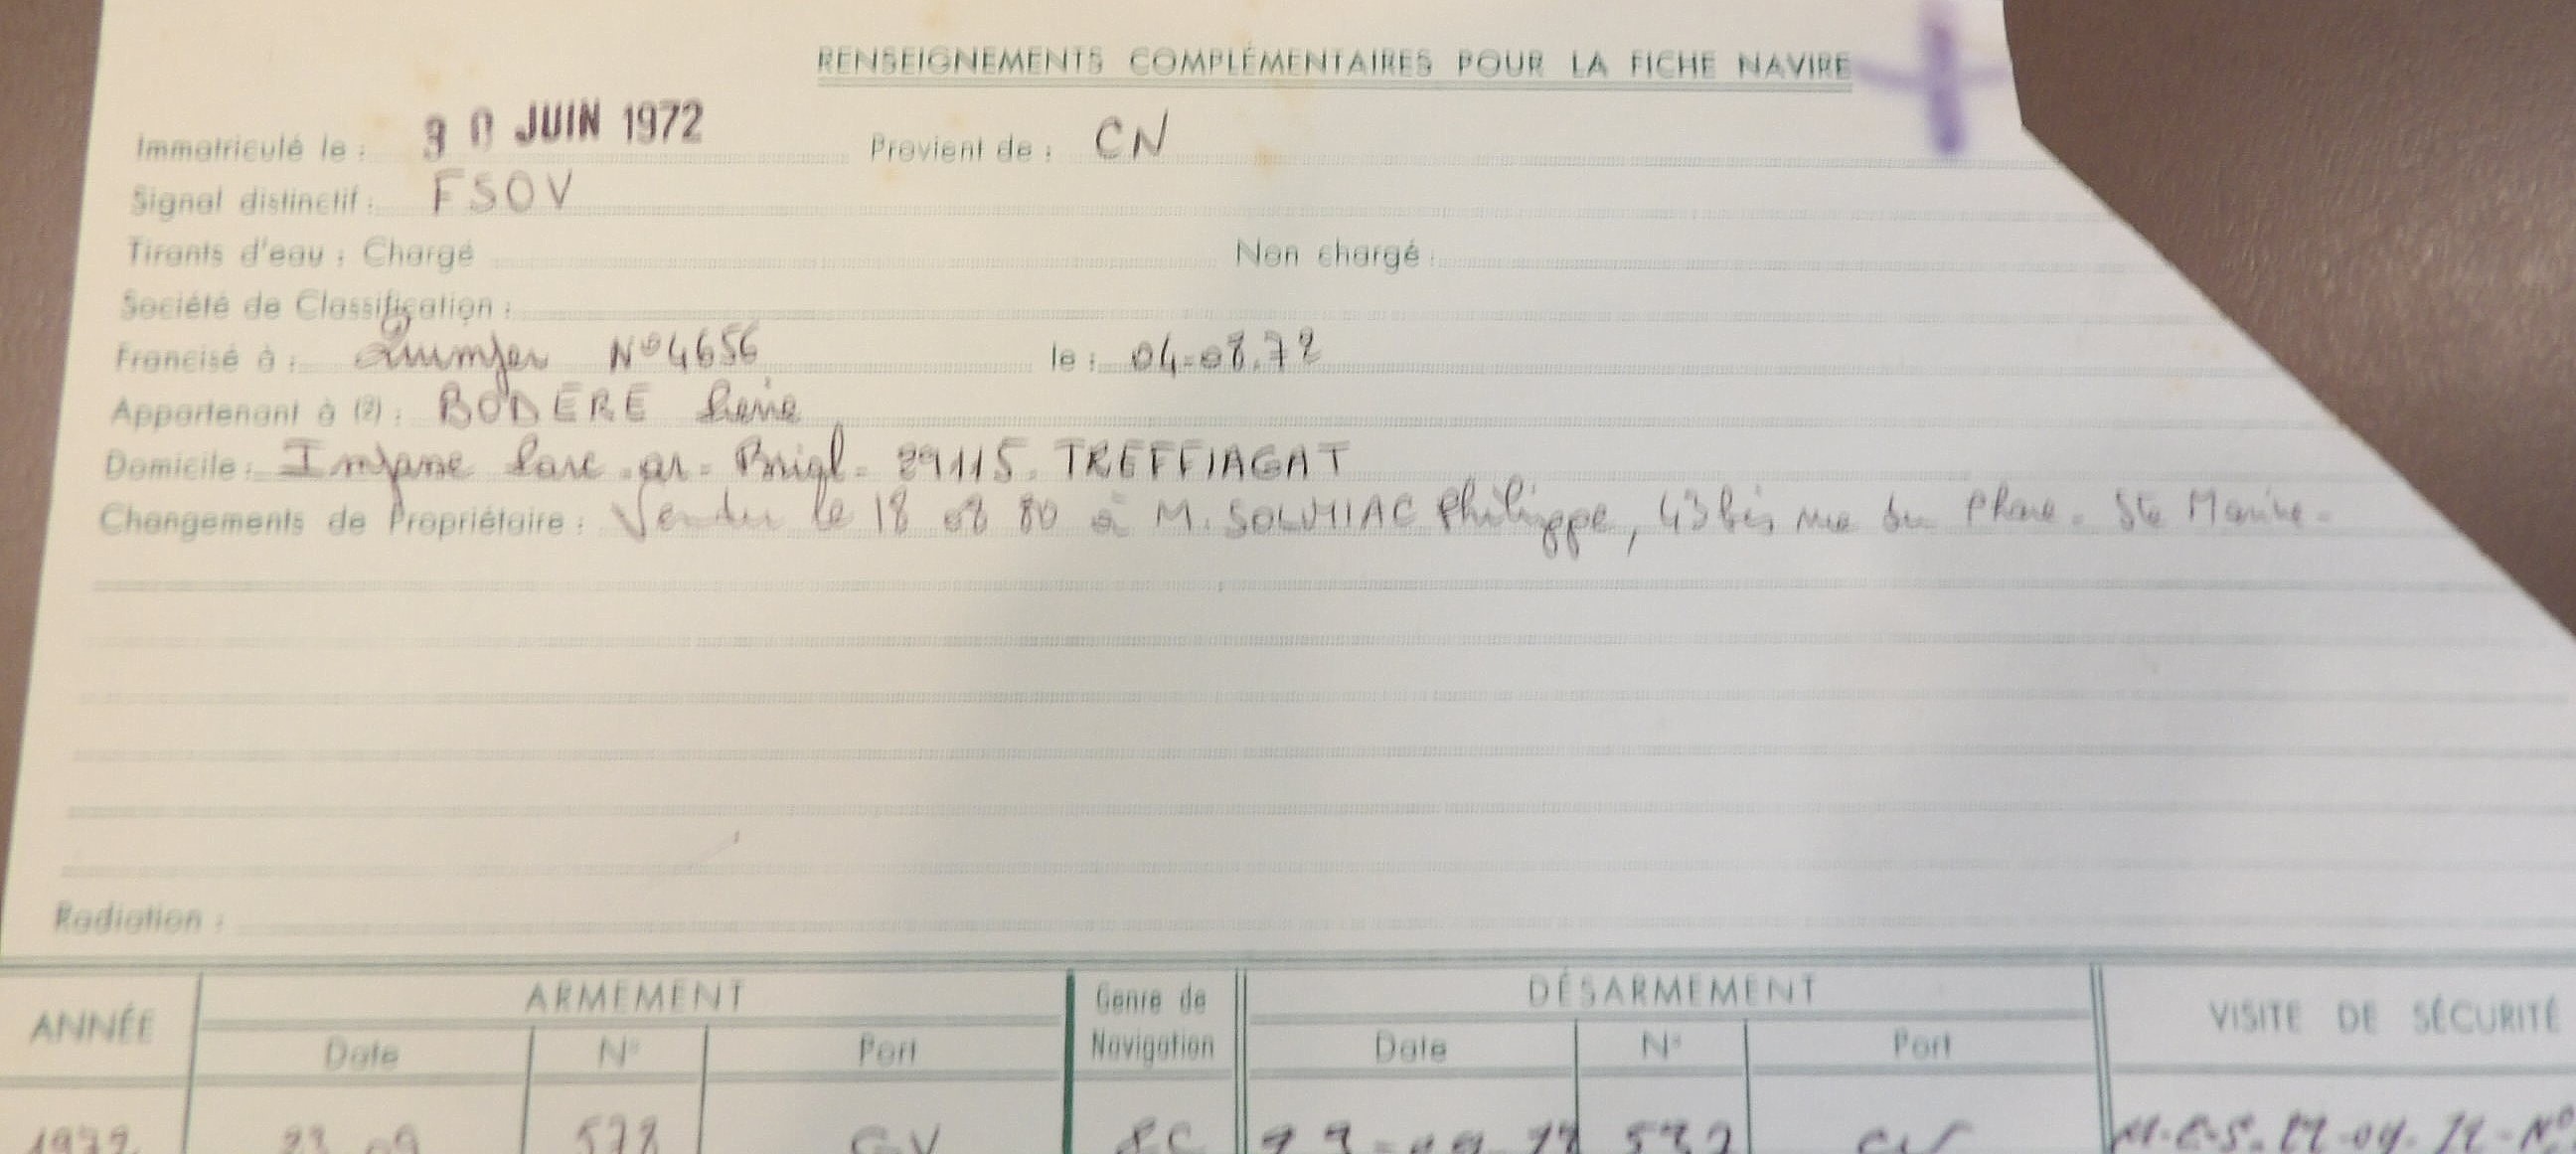 RENSEIGNEMENTS COMPLÉMENTAIRES POUR LA FICHE NAVIRE
Immatriculé le : 30 JUIN 1972 Provient de : CN
Signal distinctif : FSOV
Tirants d'eau : Chargé Non chargé :
Société de Classification :
Francisé à : Quimper N° 4656 le : 04-08.72
Appartenant à (2) : BODERE
Domicile : Impasse Parc ar 29115. TREFFIAGAT
Changements de Propriétaire : Vendu le 18 08 80 à M. SOLMIAC Philippe, 43 bis rue du Phare. Ste Marine.
Radiation :
ANNÉE ARMEMENT Genre de Navigation DÉSARMEMENT VISITE DE SÉCURITÉ
Date N° Port Date N° Port
1972 578 GV